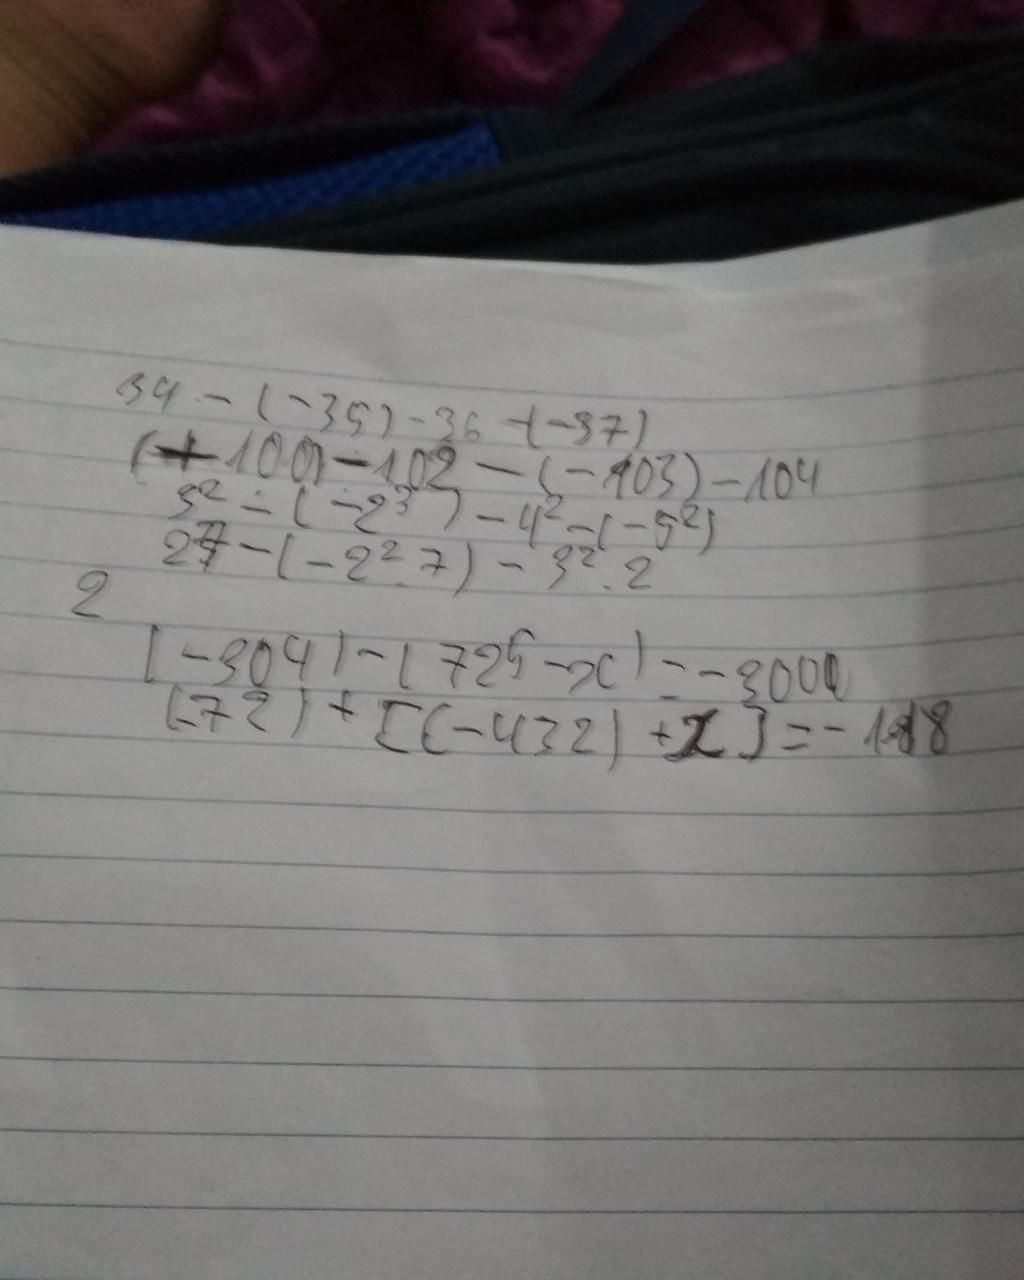 34 - (-35) - 36 - (-37)
(+100) - 102 - (-103) - 104
3² - (-2³) - 4² - (-5²)
27 - (-2².7) - 3².2
2
(-304) - (725 - x) = -3000
(-72) + [(-432) + x] =